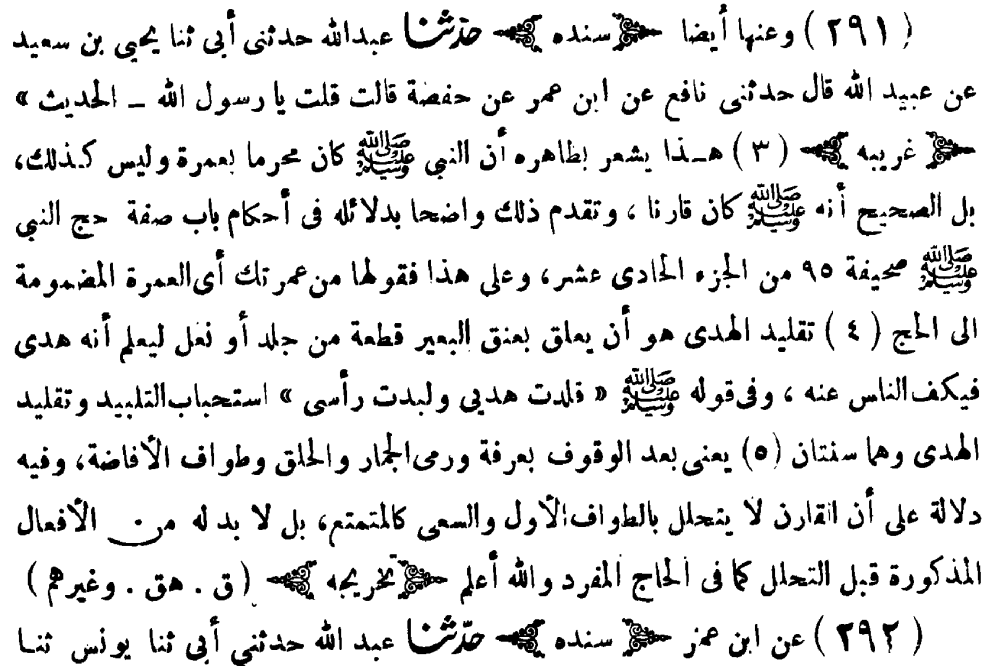 ( ٢٩١ ) وعنها أيضا ﴿ سنده ﴾ حدّثنا عبدالله حدثنى أبى ثنا يحيى بن سعيد
عن عبيد الله قال حدثنى نافع عن ابن عمر عن حفصة قالت قلت يا رسول الله ــ الحديث »
﴿ غريبه ﴾ ( ٣ ) هـذا يشعر بظاهره أن النبى ﷺ كان محرما بعمرة وليس كـذلك،
بل الصحيح أنه ﷺ كان قارنا ، وتقدم ذلك واضحا بدلائله فى أحكام باب صفة حج النبي
ﷺ صحيفة ٩٥ من الجزء الحادى عشر، وعلى هذا فقولها من عمرتك أى العمرة المضمومة
الى الحج ( ٤ ) تقليد الهدى هو أن يعلق بعنق البعير قطعة من جلد أو نعل ليعلم أنه هدى
فيكف الناس عنه ، وفى قوله ﷺ « قلدت هديى ولبدت رأسى » استحباب التلبيد وتقليد
الهدى وهما سنتان (٥) يعنى بعد الوقوف بعرفة ورمى الجمار والحلق وطواف الأفاضة، وفيه
دلالة على أن القارن لا يتحلل بالطواف الأول والسعى كالمتمتع، بل لا بد له من الأفعال
المذكورة قبل التحلل كما فى الحاج المفرد والله أعلم ﴿ تخريجه ﴾ ( ق . هق . وغيرهم )
( ٢٩٢ ) عن ابن عمر ﴿ سنده ﴾ حدّثنا عبد الله حدثني أبي ثنا يونس ثنا